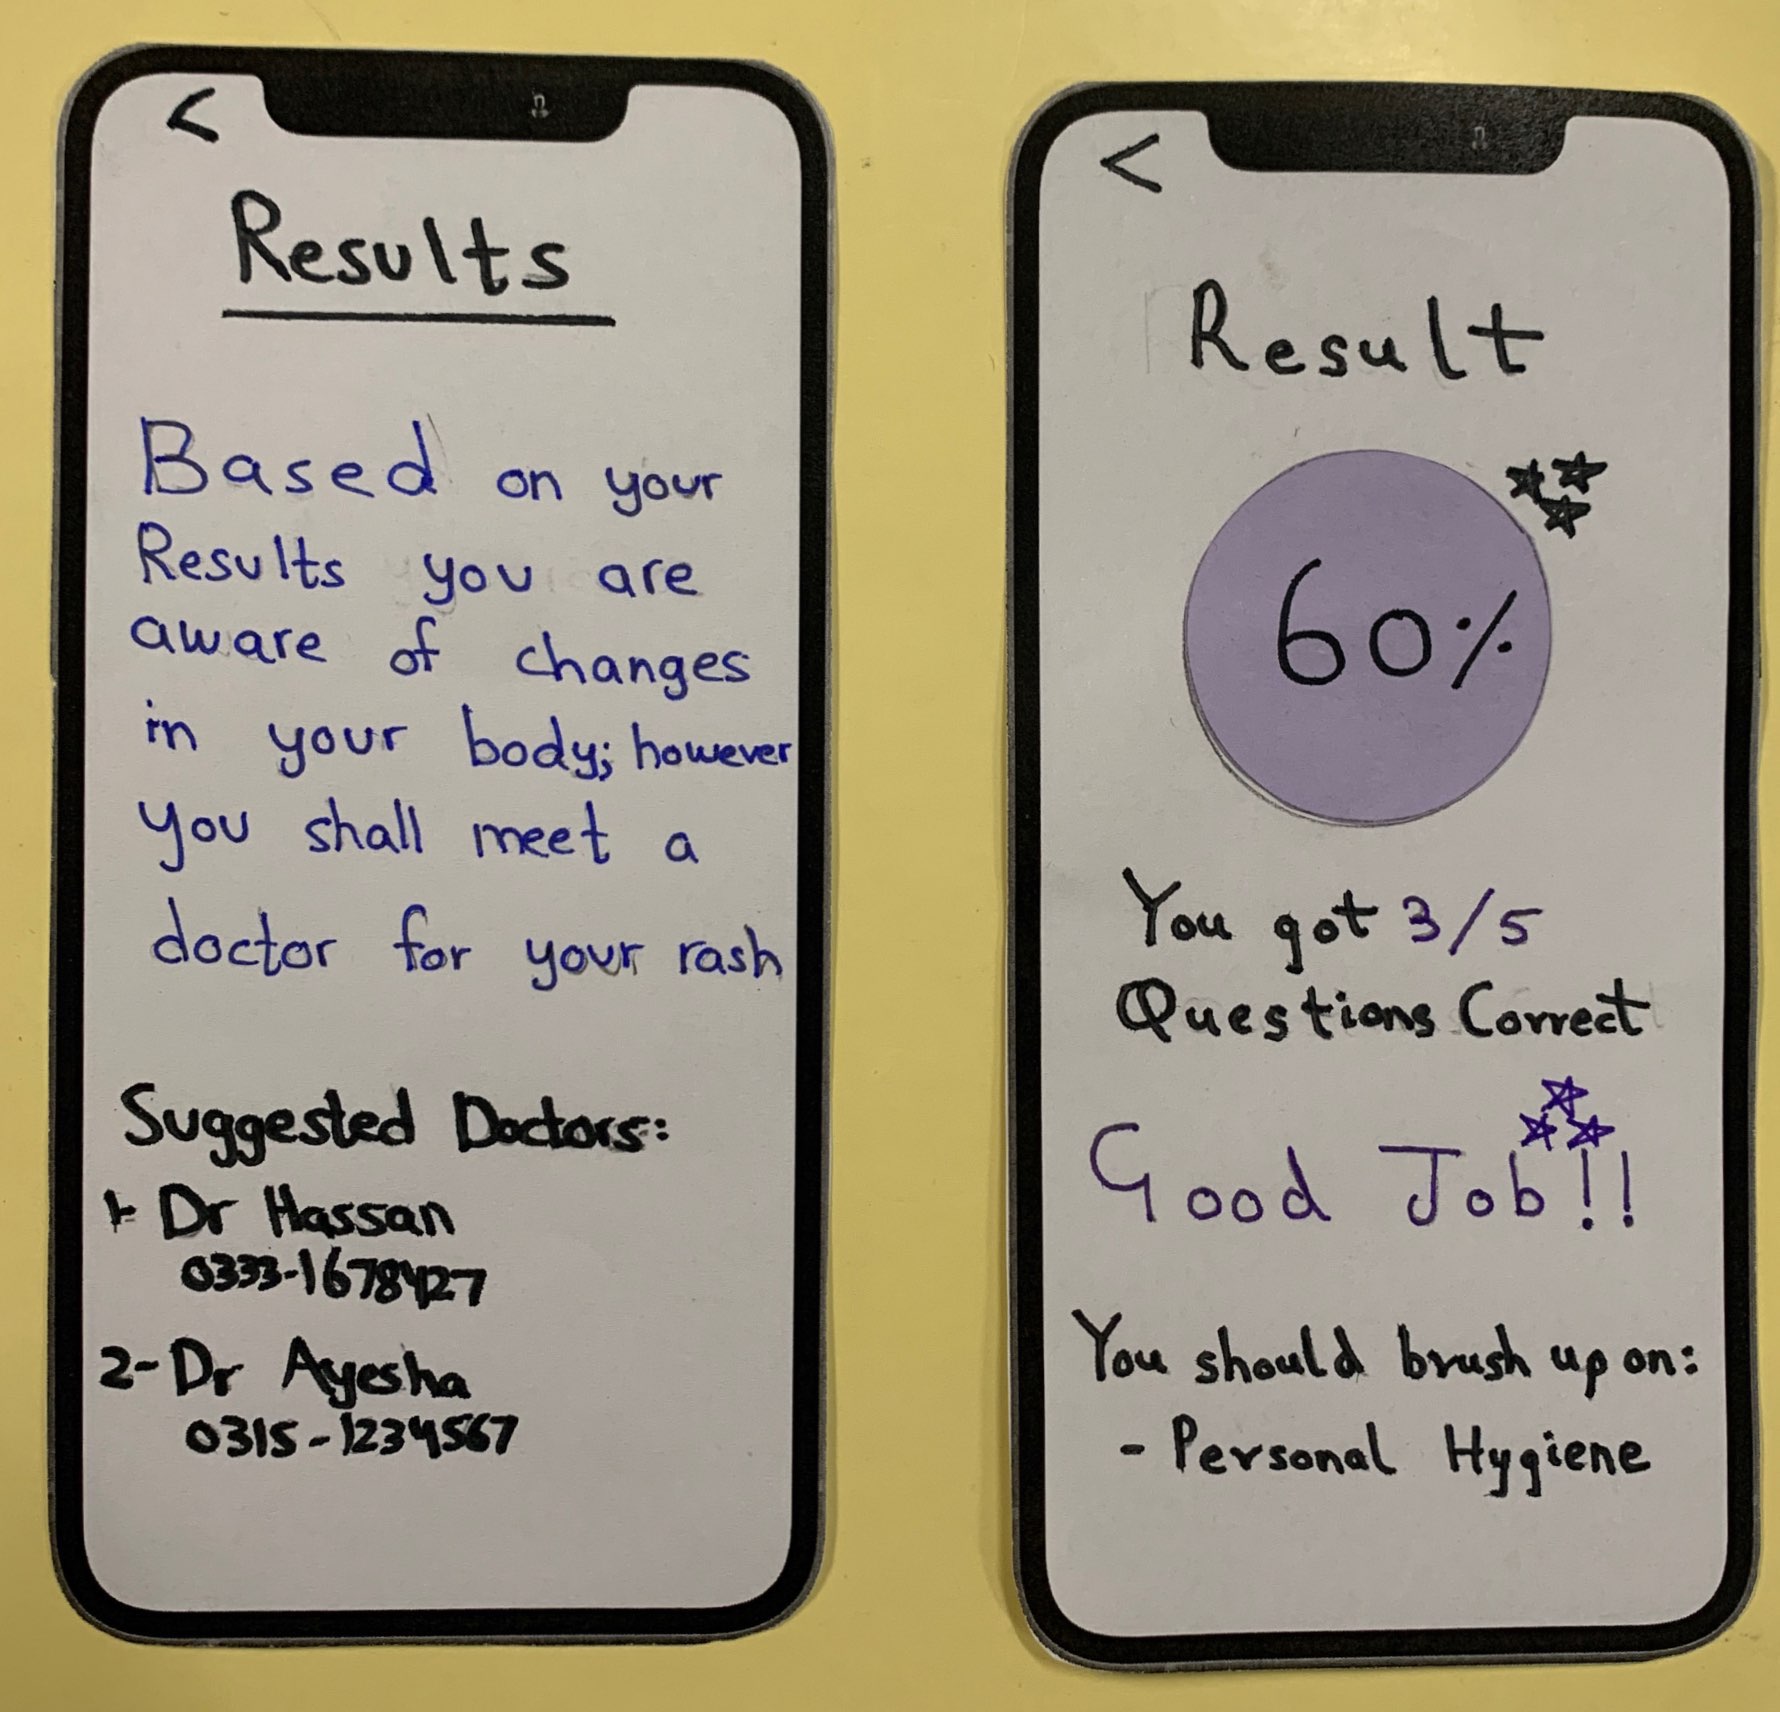 <
Results
Based on your
Results you are
aware of changes
in your body; however
you shall meet a
doctor for your rash
Suggested Doctors:
1- Dr Hassan
0333-1678427
2- Dr Ayesha
0315-1234567
<
Result
60%
You got 3/5
Questions Correct
Good Job!!
You should brush up on:
- Personal Hygiene